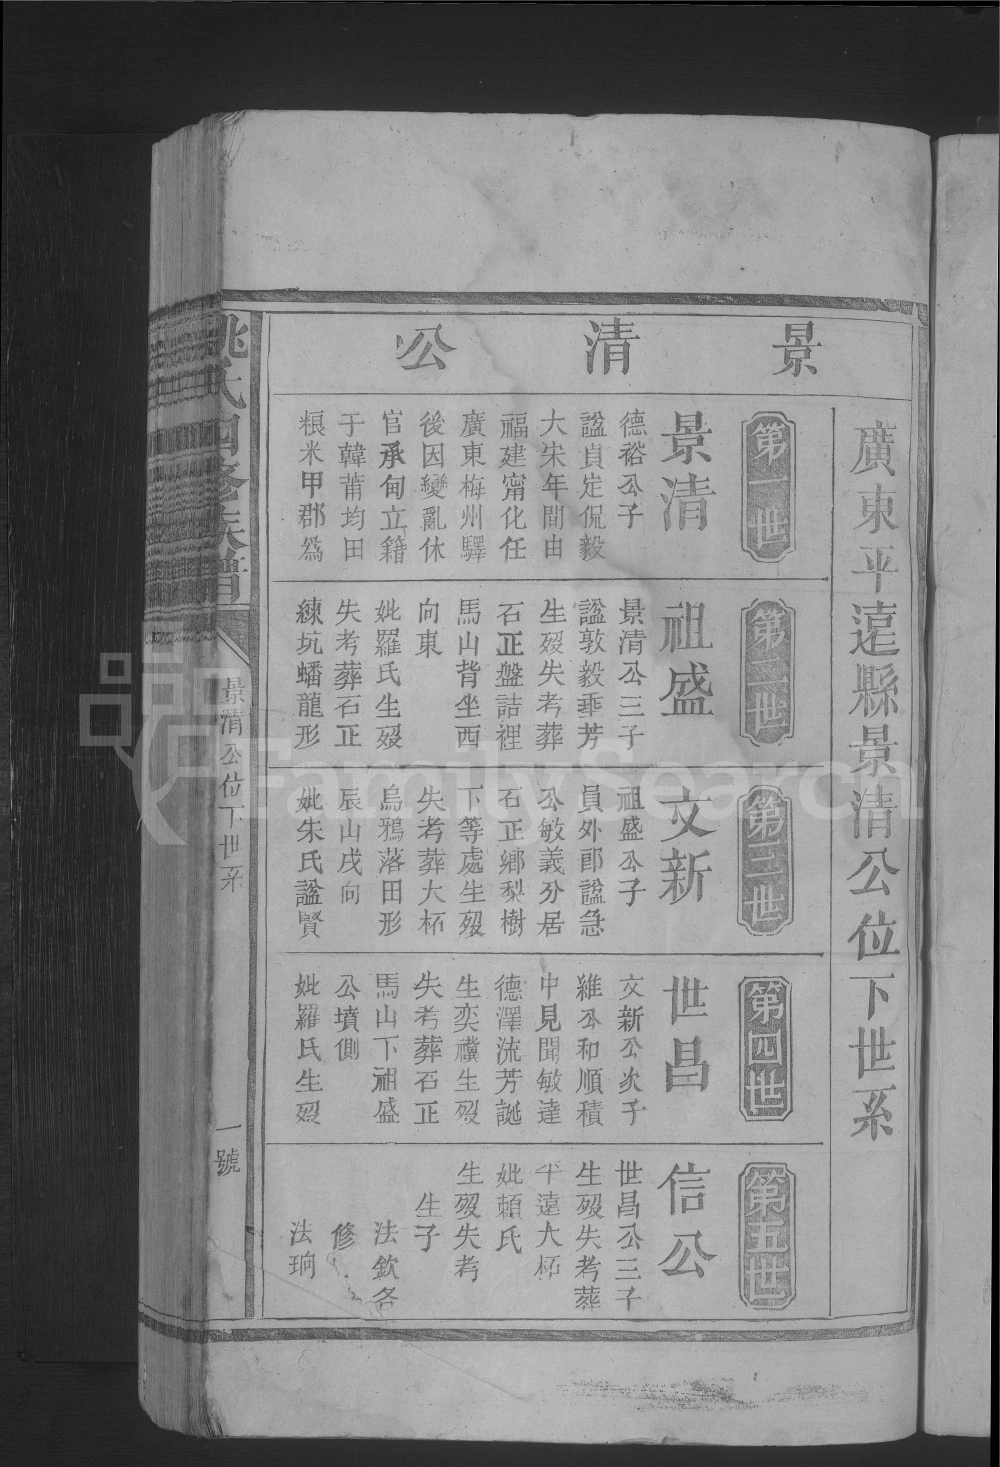 景清公
廣東平遠縣景清公位下世系
第一世
景清
德裕公子
諡貞定侃毅
大宋年間由
福建甯化任
廣東梅州驛
後因變亂休
官承甸立籍
于韓莆均田
粮米甲郡為
第二世
祖盛
景清公三子
諡敦毅垂芳
生歿失考葬
石正盤詰裡
馬山背坐西
向東
妣羅氏生歿
失考葬石正
練坑蟠龍形
第三世
文新
祖盛公子
員外郎諡急
公敏義分居
石正鄉梨樹
下等處生歿
失考葬大柘
烏鴉落田形
辰山戌向
妣朱氏諡賢
第四世
世昌
文新公次子
維公和順積
中見聞敏達
德澤流芳誕
生奕禩生歿
失考葬石正
馬山下祖盛
公墳側
妣羅氏生歿
第五世
信公
世昌公三子
生歿失考葬
平遠大柘
妣賴氏
生歿失考
生子
法欽各
修
法珦
姚氏四修族譜
景清公位下世系
一號
FamilySearch